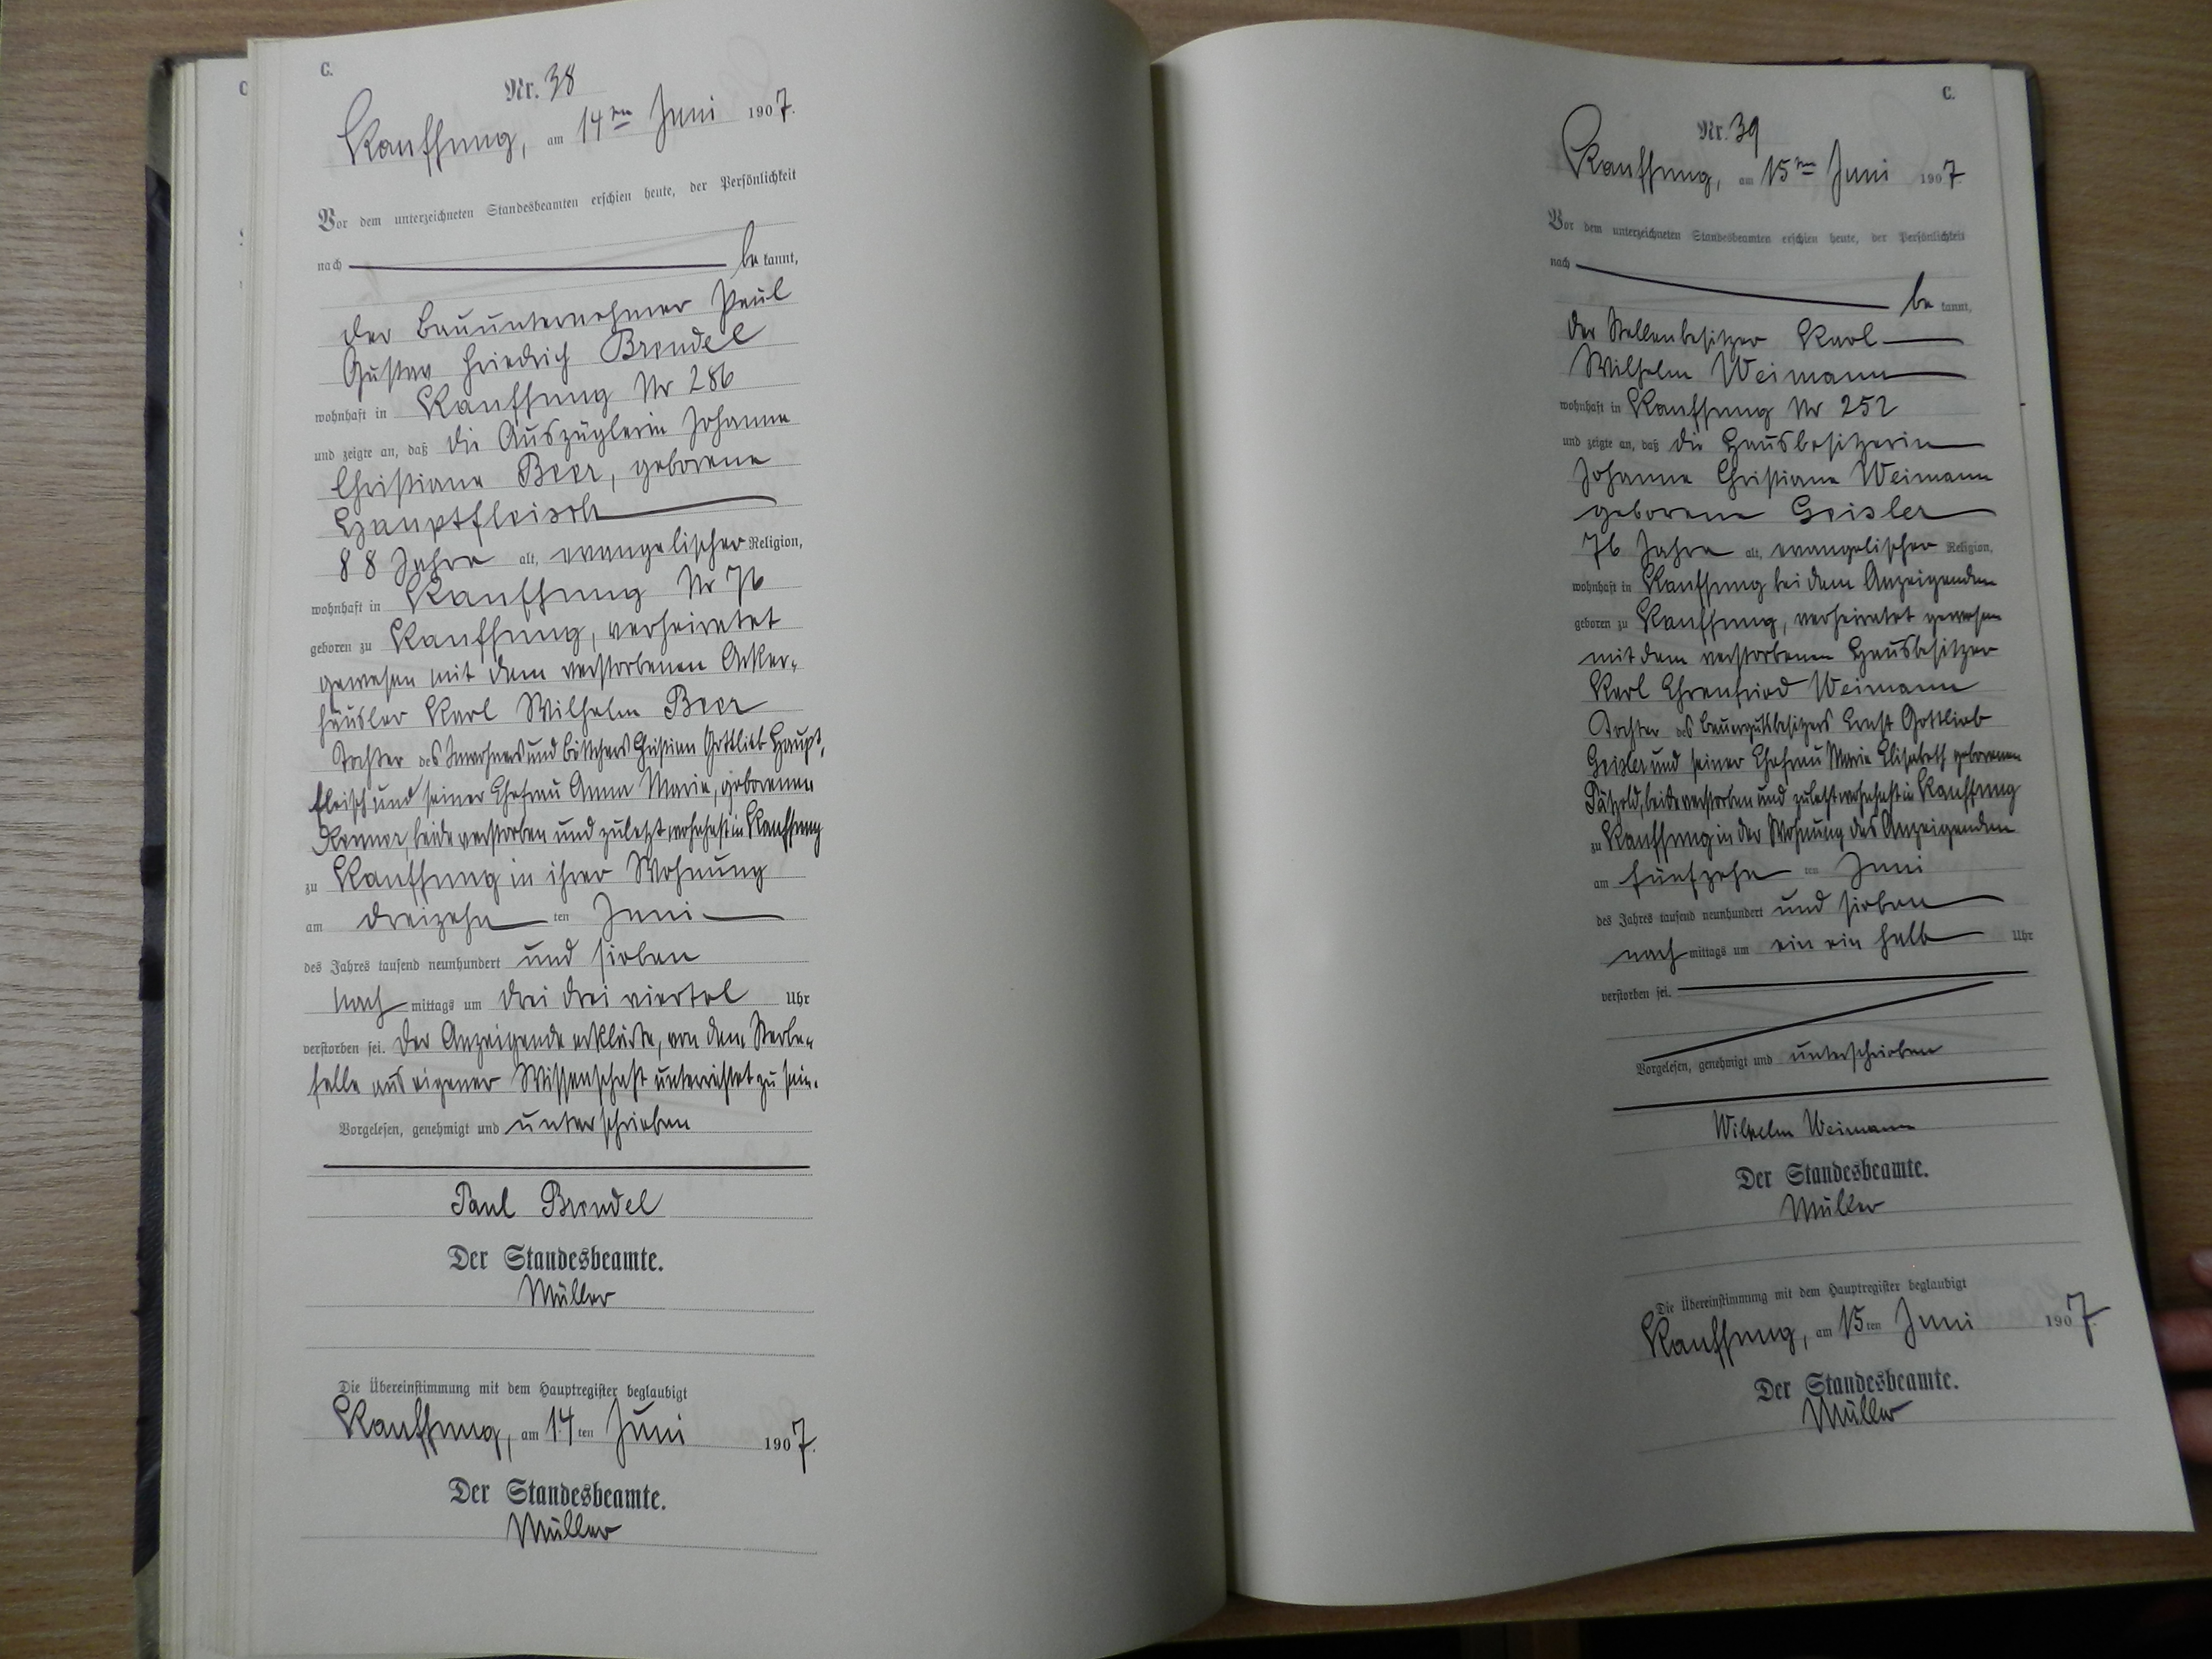 C.
Nr. 38
Kauffung, am 14ten Juni 1907.
Vor dem unterzeichneten Standesbeamten erschien heute, der Persönlichkeit
nach be kannt,
der Bauunternehmer Paul
Gustav Friedrich Brendel
wohnhaft in Kauffung Nr 286
und zeigte an, daß die Auszüglerin Johanne
Christiane Beer, geborene
Hauptfleisch
88 Jahre alt, evangelischer Religion,
wohnhaft in Kauffung Nr 76
geboren zu Kauffung, verheiratet
gewesen mit dem verstorbenen Acker-
häusler Karl Wilhelm Beer
Tochter des Inwohners und Böttchers Christian Gottlieb Haupt-
fleisch und seiner Ehefrau Anna Marie, geborenen
beide verstorben und zuletzt wohnhaft in Kauffung
zu Kauffung in ihrer Wohnung
am dreizehn ten Juni
des Jahres tausend neunhundert und sieben
nach mittags um drei drei viertel Uhr
verstorben sei. Der Anzeigende erklärte, von dem Sterbe-
falle aus eigener Wissenschaft unterrichtet zu sein.
Vorgelesen, genehmigt und unterschrieben
Paul Brendel
Der Standesbeamte.
Müller
Die Übereinstimmung mit dem Hauptregister beglaubigt
Kauffung, am 14 ten Juni 1907.
Der Standesbeamte.
Müller
C.
Nr. 39
Kauffung, am 15ten Juni 1907.
Vor dem unterzeichneten Standesbeamten erschien heute, der Persönlichkeit
nach be kannt,
der Stellenbesitzer Karl
Wilhelm Weimann
wohnhaft in Kauffung Nr 252
und zeigte an, daß die Hausbesitzerin
Johanne Christiane Weimann
geborene Geisler
76 Jahre alt, evangelischer Religion,
wohnhaft in Kauffung bei dem Anzeigenden
geboren zu Kauffung, verheiratet gewesen
mit dem verstorbenen Hausbesitzer
Karl Ehrenfried Weimann
Tochter des Bauergutsbesitzers Ernst Gottlieb
Geisler und seiner Ehefrau Marie Elisabeth geborenen
Pätzold, beide verstorben und zuletzt wohnhaft in Kauffung
zu Kauffung in der Wohnung des Anzeigenden
am fünfzehn ten Juni
des Jahres tausend neunhundert und sieben
nach mittags um ein ein halb Uhr
verstorben sei.
Vorgelesen, genehmigt und unterschrieben
Wilhelm Weimann
Der Standesbeamte.
Müller
Die Übereinstimmung mit dem Hauptregister beglaubigt
Kauffung, am 15 ten Juni 1907.
Der Standesbeamte.
Müller